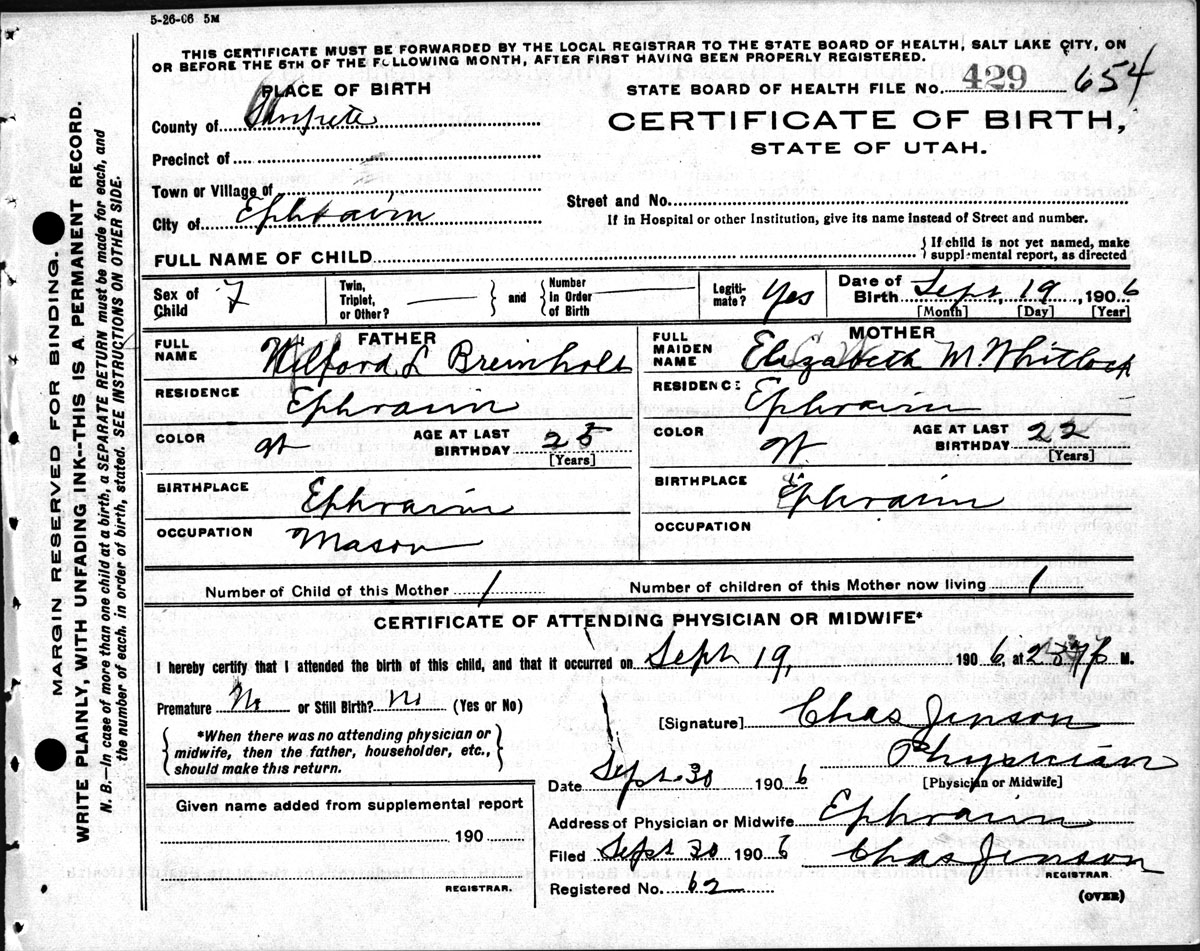 5-26-06 5M
THIS CERTIFICATE MUST BE FORWARDED BY THE LOCAL REGISTRAR TO THE STATE BOARD OF HEALTH, SALT LAKE CITY, ON
OR BEFORE THE 5TH OF THE FOLLOWING MONTH, AFTER FIRST HAVING BEEN PROPERLY REGISTERED.
PLACE OF BIRTH
STATE BOARD OF HEALTH FILE No. 429 654
County of Sanpete
CERTIFICATE OF BIRTH,
STATE OF UTAH.
Precinct of
Town or Village of
Street and No.
City of Ephraim
If in Hospital or other Institution, give its name instead of Street and number.
FULL NAME OF CHILD
If child is not yet named, make
supplemental report, as directed
Sex of Child F
Twin, Triplet, or Other?
and
Number In Order of Birth
Legitimate? Yes
Date of Birth Sept 19, 1906
[Month] [Day] [Year]
FATHER
FULL NAME Wilford L Breinholt
RESIDENCE Ephraim
COLOR W
AGE AT LAST BIRTHDAY 25
[Years]
BIRTHPLACE Ephraim
OCCUPATION Mason
MOTHER
FULL MAIDEN NAME Elizabeth M. Whitlock
RESIDENCE Ephraim
COLOR W
AGE AT LAST BIRTHDAY 22
[Years]
BIRTHPLACE Ephraim
OCCUPATION
Number of Child of this Mother 1
Number of children of this Mother now living 1
CERTIFICATE OF ATTENDING PHYSICIAN OR MIDWIFE*
I hereby certify that I attended the birth of this child, and that it occurred on Sept 19, 1906, at M.
Premature No or Still Birth? No (Yes or No)
*When there was no attending physician or
midwife, then the father, householder, etc.,
should make this return.
[Signature] Chas Jenson
Physician
[Physician or Midwife]
Date Sept. 30 1906
Given name added from supplemental report
190
REGISTRAR.
Address of Physician or Midwife Ephraim
Filed Sept 30 1906 Chas Jenson
REGISTRAR.
Registered No. 62
(OVER)
MARGIN RESERVED FOR BINDING.
WRITE PLAINLY, WITH UNFADING INK--THIS IS A PERMANENT RECORD.
N. B.--In case of more than one child at a birth, a SEPARATE RETURN must be made for each, and
the number of each, in order of birth, stated. SEE INSTRUCTIONS ON OTHER SIDE.